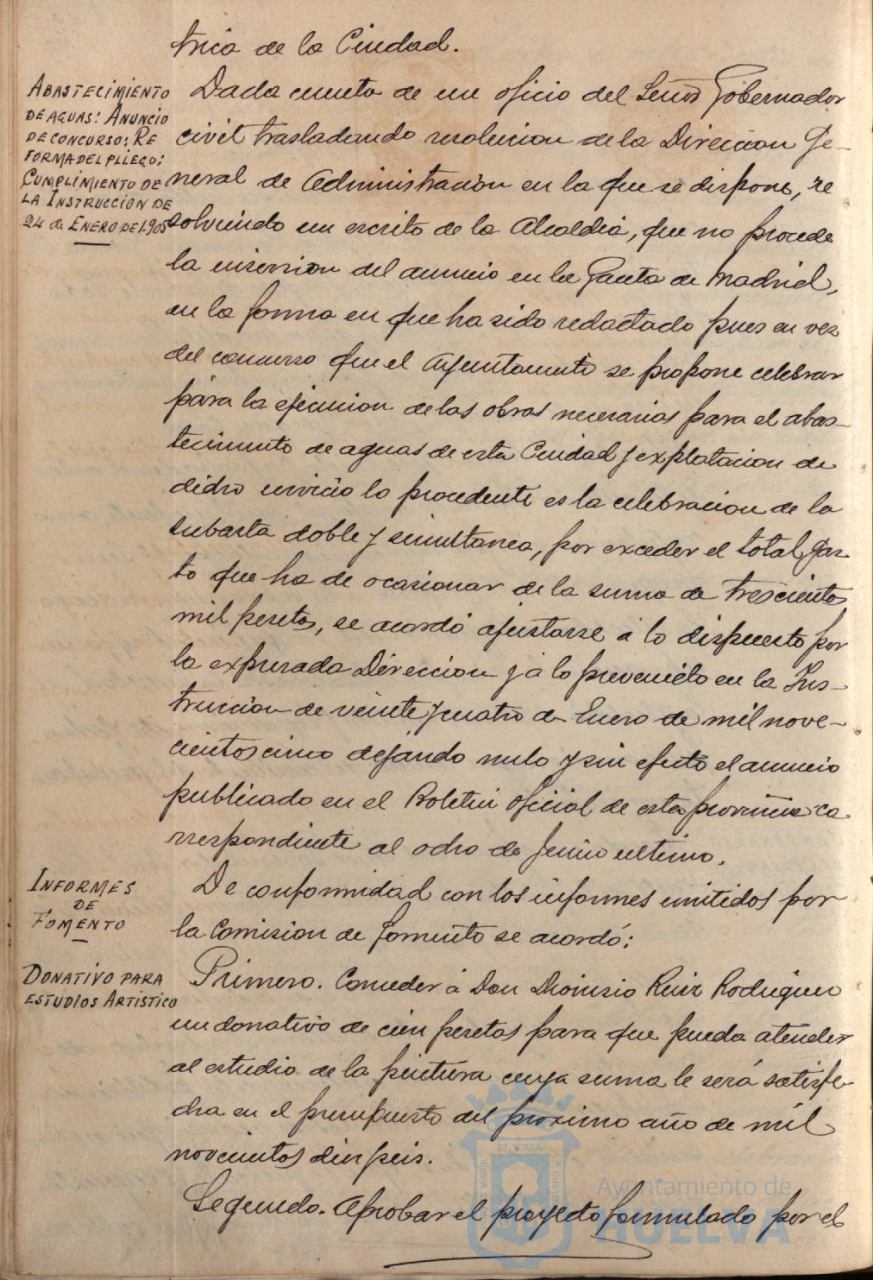 trica de la Ciudad.
ABASTECIMIENTO
DE AGUAS: ANUNCIO
DE CONCURSO: RE
FORMA DEL PLIEGO:
CUMPLIMIENTO DE
LA INSTRUCCION DE
24 de ENERO DE 1.905
Dada cuenta de un oficio del Señor Gobernador
civil trasladando resolucion de la Direccion Ge-
neral de Administración en la que se dispone, re
solviendo un escrito de la Alcaldia, que no procede
la insersion del anuncio en la Gaceta de Madrid,
en la forma en que ha sido redactado pues en vez
del concurso que el Ayuntamiento se propone celebrar
para la ejecucion de las obras necesarias para el abas-
tecimiento de aguas de esta Ciudad y explotacion de
dicho servicio lo procedente es la celebracion de la
subasta doble y simultanea, por exceder el total gas-
to que ha de ocasionar de la suma de trescientos
mil pesetas, se acordó ajustarse á lo dispuesto por
la expresada Direccion y á lo prevenido en la Ins-
truccion de veinte y cuatro de Enero de mil nove-
cientos cinco dejando nulo y sin efecto el anuncio
publicado en el Boletin oficial de esta provincia co
rrespondiente al ocho de Junio ultimo.
INFORMES
DE
FOMENTO
De conformidad con los informes emitidos por
la Comision de Fomento se acordó:
DONATIVO PARA
ESTUDIOS ARTISTICO
Primero. Conceder á Don Dionisio Ruiz Rodriguez
un donativo de cien pesetas para que pueda atender
al estudio de la pintura cuya suma le será satisfe-
cha en el presupuesto del próximo año de mil
novecientos diez y seis.
Segundo. Aprobar el proyecto formulado por el
Ayuntamiento de
HUELVA